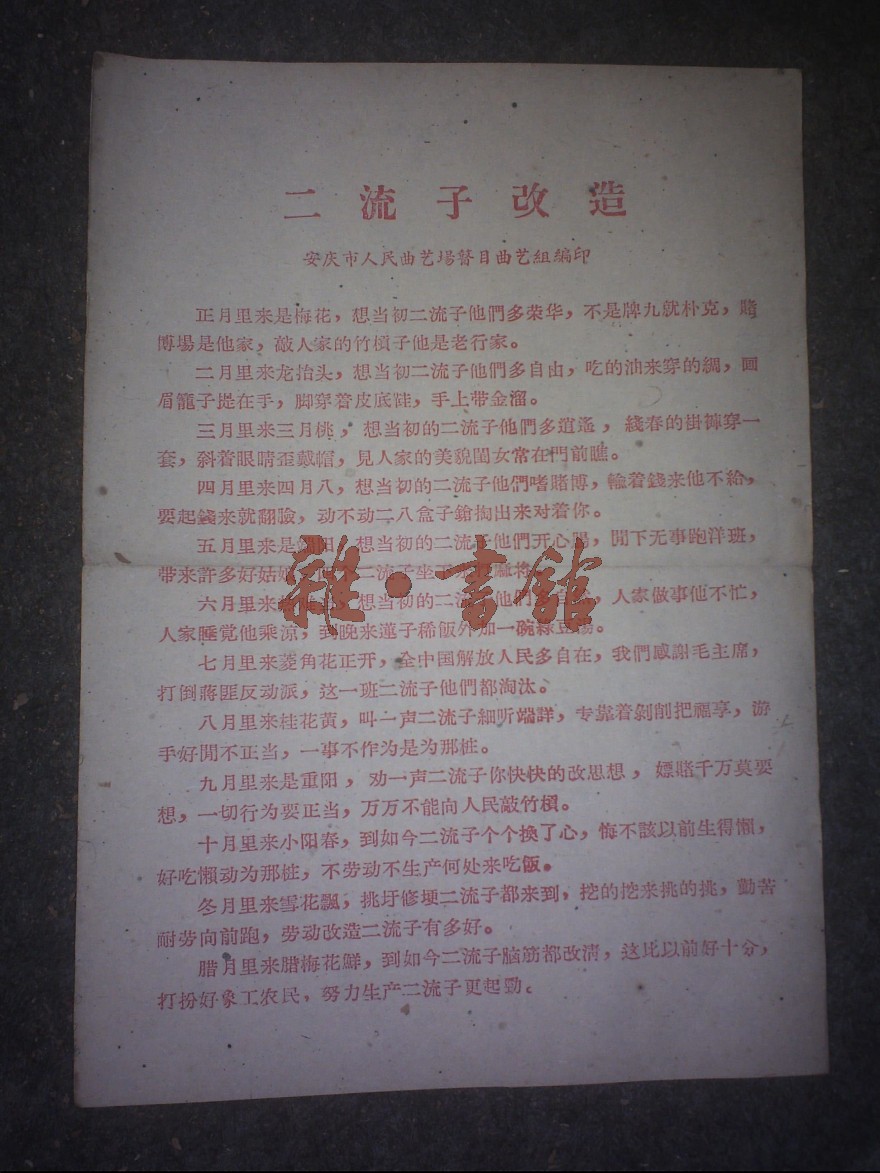 二流子改造
安庆市人民曲艺場瞽目曲艺組編印
正月里来是梅花，想当初二流子他們多荣华，不是牌九就朴克，賭
博場是他家，敲人家的竹槓子他是老行家。
二月里来龙抬头，想当初二流子他們多自由，吃的油来穿的綢，画
眉籠子提在手，脚穿着皮底鞋，手上带金溜。
三月里来三月桃，想当初的二流子他們多逍遙，綫春的掛褲穿一
套，斜着眼睛歪戴帽，見人家的美貌閨女常在門前瞧。
四月里来四月八，想当初的二流子他們嗜賭博，輸着錢来他不給，
要起錢来就翻臉，动不动二八盒子鎗掏出来对着你。
五月里来是 阳，想当初的二流子他們开心 ，閒下无事跑洋班，
带来許多好姑 二流子坐
六月里来 想当初的二流 他們 ，人家做事他不忙，
人家睡覚他乘凉，到晚来蓮子稀飯外加一碗綠豆湯。
七月里来菱角花正开，全中国解放人民多自在，我們感謝毛主席，
打倒蔣匪反动派，这一班二流子他們都淘汰。
八月里来桂花黃，叫一声二流子細听端詳，专靠着剝削把福享，游
手好閒不正当，一事不作为是为那桩。
九月里来是重阳，劝一声二流子你快快的改思想，嫖賭千万莫要
想，一切行为要正当，万万不能向人民敲竹槓。
十月里来小阳春，到如今二流子个个換了心，悔不該以前生得懶，
好吃懶动为那桩，不劳动不生产何处来吃飯。
冬月里来雪花飄，挑圩修埂二流子都来到，挖的挖来挑的挑，勤苦
耐劳向前跑，劳动改造二流子有多好。
腊月里来腊梅花鮮，到如今二流子脑筋都改清，这比以前好十分，
打扮好象工农民，努力生产二流子更起勁。
雜·書館